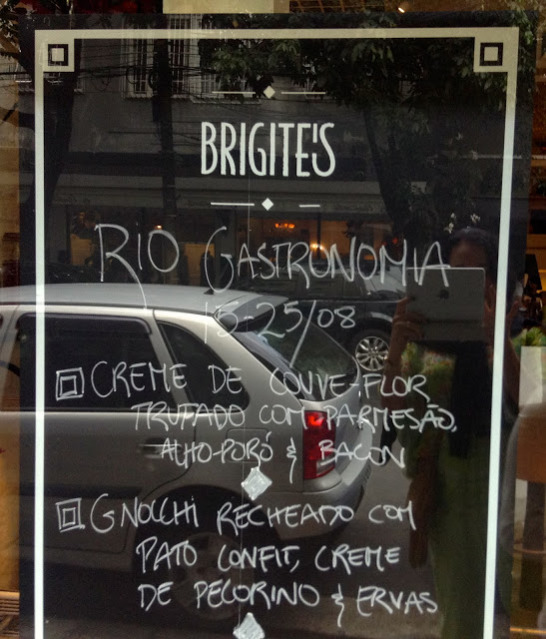 BRIGITE'S
RIO GASTRONOMIA
15-25/08
CREME DE COUVE-FLOR
TRUFADO COM PARMESÃO,
ALHO-PORÓ & BACON
GNOCCHI RECHEADO COM
PATO CONFIT, CREME
DE PECORINO & ERVAS